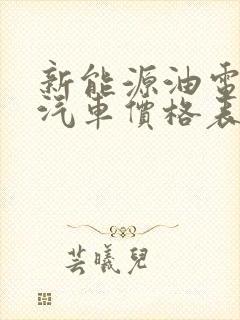 新能源油電
汽車價格表
芸曦兒